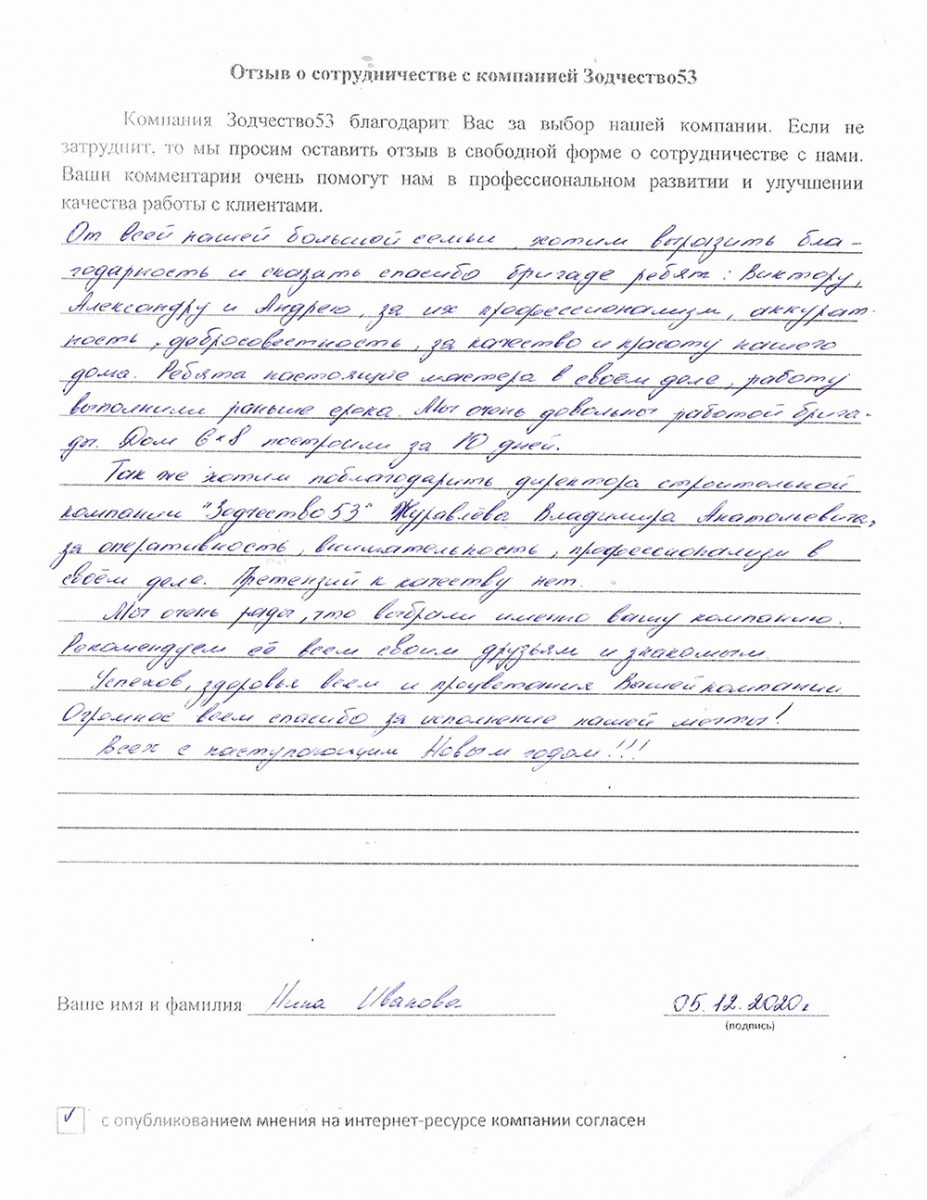 Отзыв о сотрудничестве с компанией Зодчество53
Компания Зодчество53 благодарит Вас за выбор нашей компании. Если не
затруднит, то мы просим оставить отзыв в свободной форме о сотрудничестве с нами.
Ваши комментарии очень помогут нам в профессиональном развитии и улучшении
качества работы с клиентами.
От всей нашей большой семьи, хотим выразить бла-
годарность и сказать спасибо бригаде ребят: Виктору,
Александру и Андрею, за их профессионализм, аккурат-
ность, добросовестность, за качество и красоту нашего
дома. Ребята настоящие мастера в своём деле, работу
выполнили раньше срока. Мы очень довольны работой брига-
ды. Дом 6×8 построили за 10 дней.
Так же хотим поблагодарить директора строительной
компании "Зодчество53" Журавлёва Владимира Анатольевича,
за оперативность, внимательность, профессионализм в
своём деле. Претензий к качеству нет.
Мы очень рады, что выбрали именно вашу компанию.
Рекомендуем её всем своим друзьям и знакомым.
Успехов, здоровья всем и процветания Вашей компании
Огромное всем спасибо за исполнение нашей мечты!
Всех с наступающим Новым годом!!!
Ваше имя и фамилия Нина Иванова 05.12.2020г
(подпись)
✓ с опубликованием мнения на интернет-ресурсе компании согласен